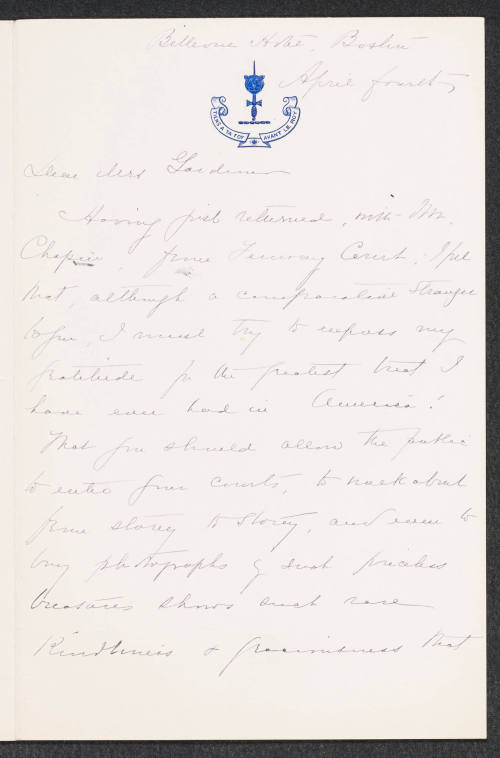 Bellevue Hotel, Boston
April fourth
TIENS A TA FOY AVANT LE ROY
Dear Mrs Gardner
Having just returned, with Mr.
Chapin, from Fenway Court, I feel
that, although a comparative stranger
to you, I must try to express my
gratitude for the greatest treat I
have ever had in America!
That you should allow the public
to enter your courts, to walk about
from storey to storey, and even to
buy photographs of such priceless
treasures shows such rare
Kindliness & graciousness that